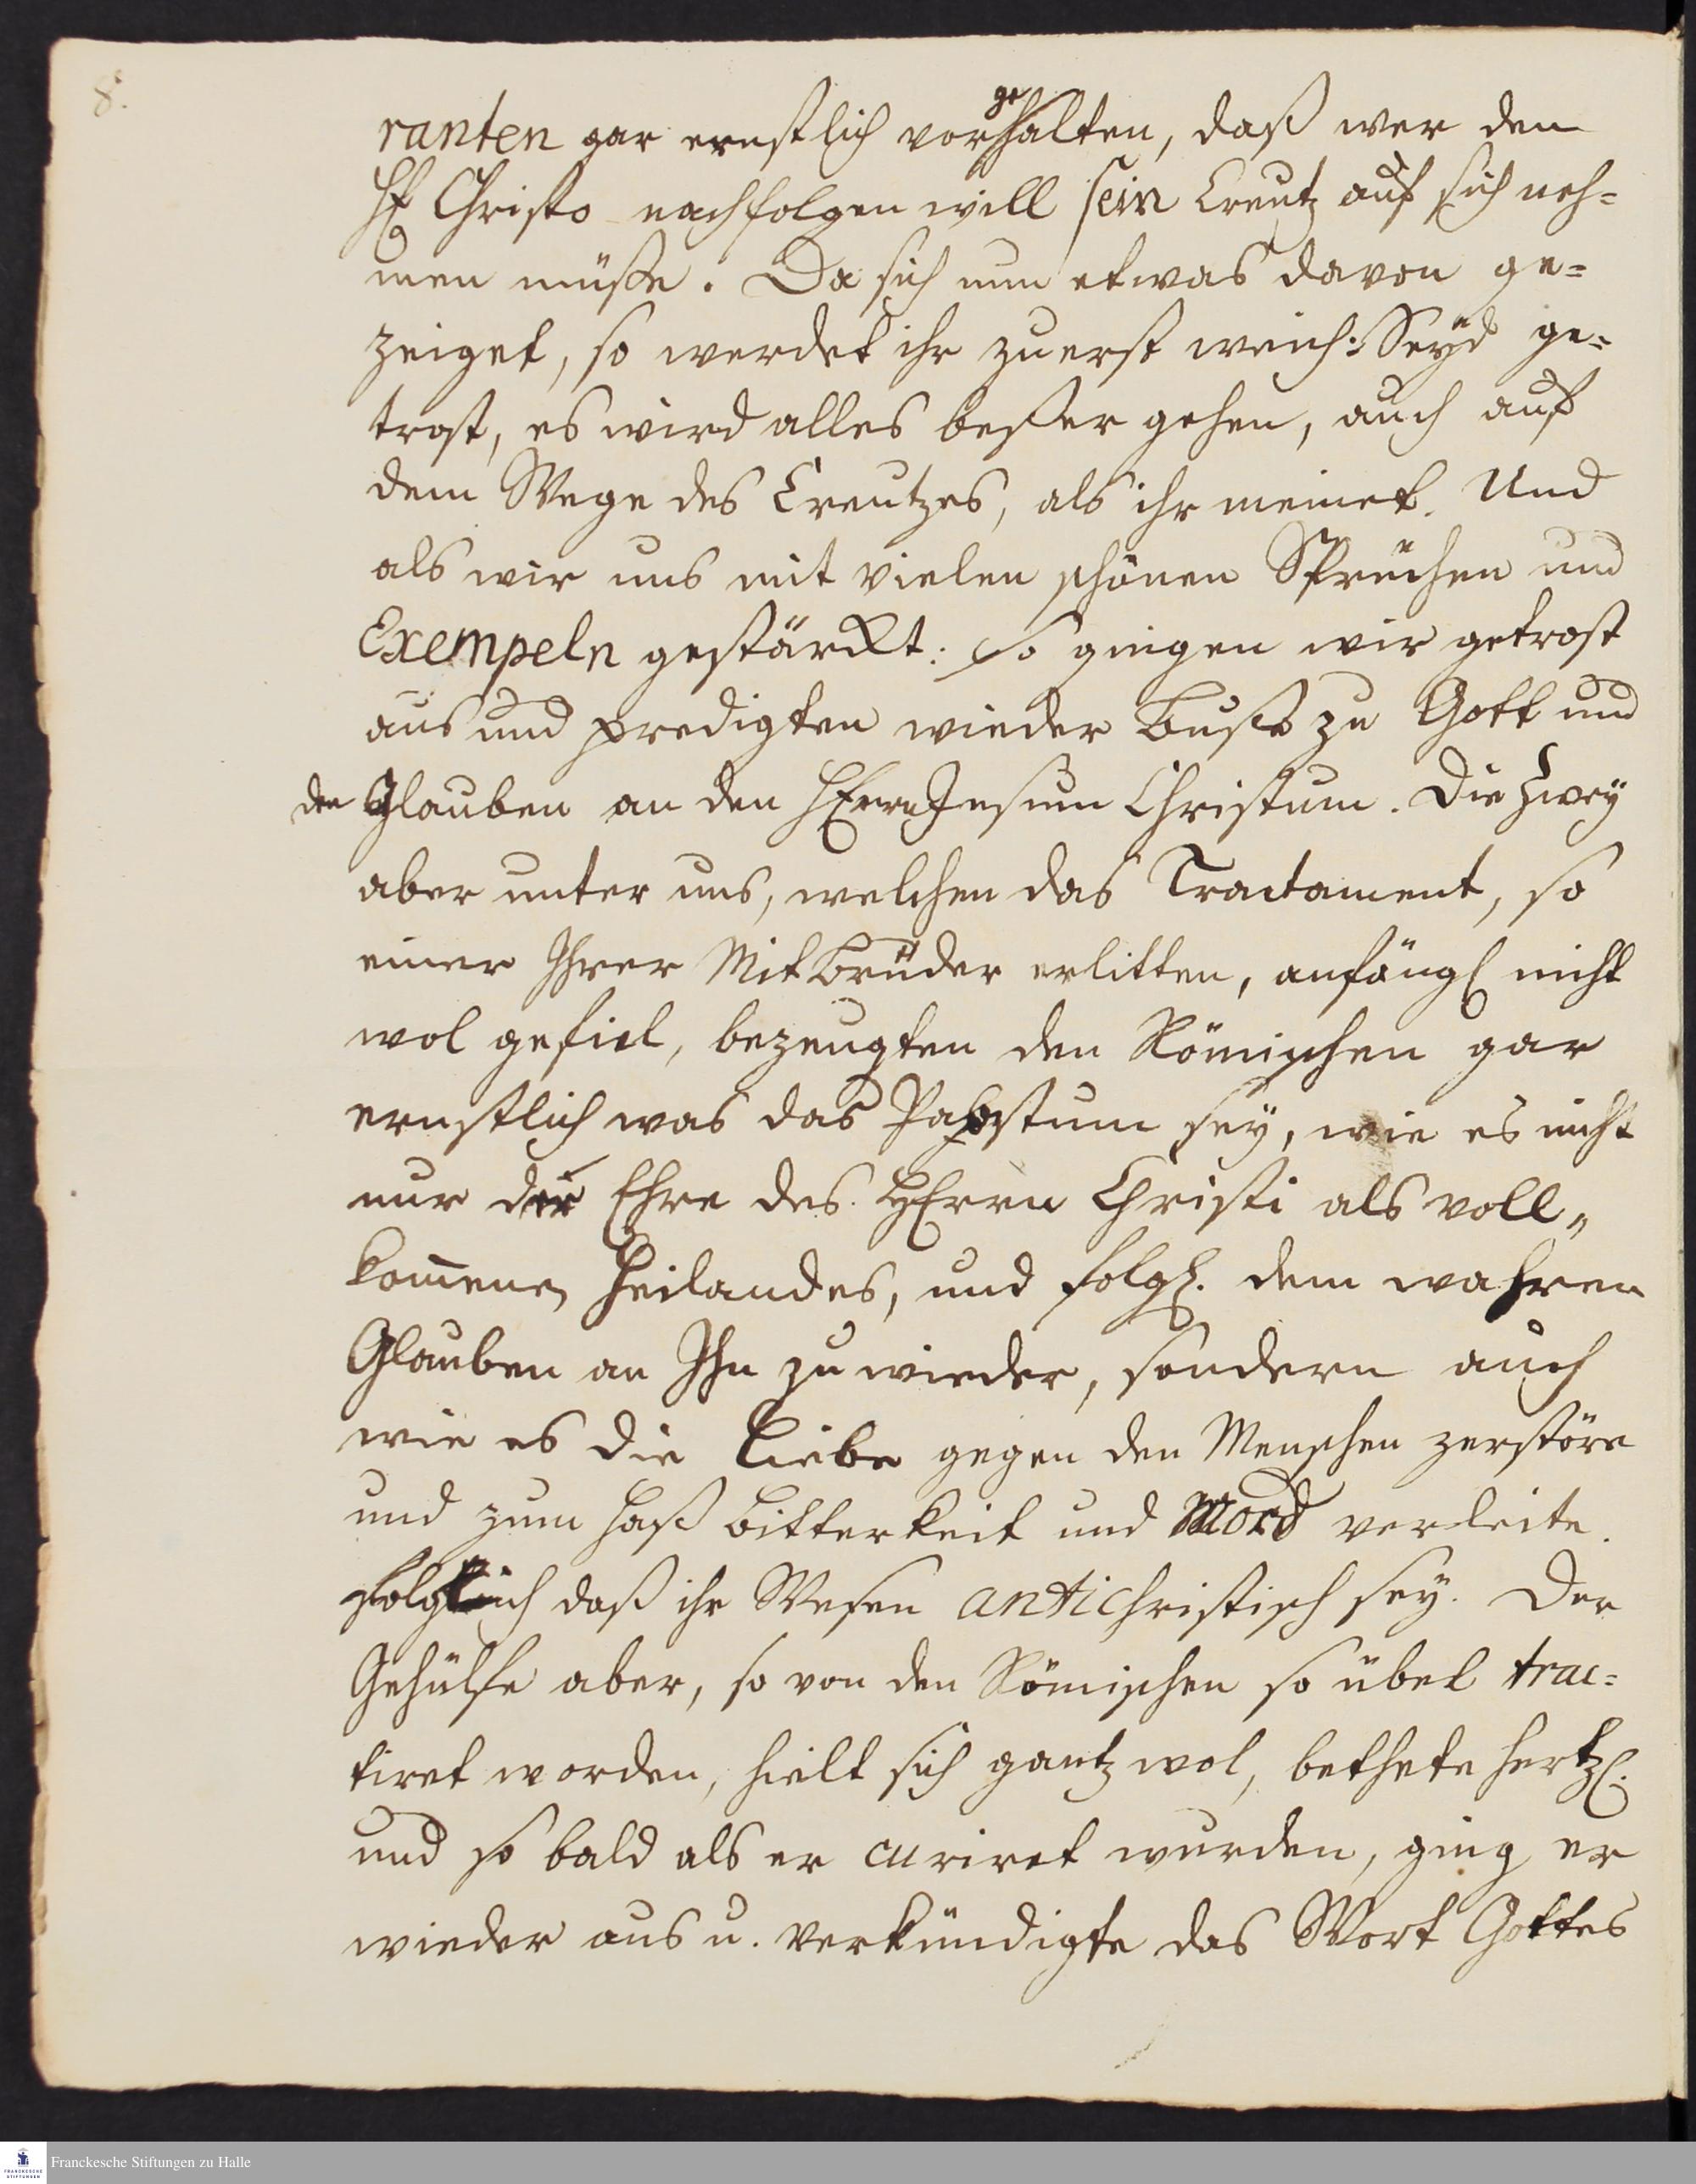 8.
ranten gar ernstlich vorgehalten, daß wer dem
HE Christo nachfolgen will sein Creutz auf sich neh=
men müße. Da sich nun etwas davon ge=
zeiget, so werdet ihr zuerst weich: Seyd ge=
trost, es wird alles beßer gehen, auch auf
dem Wege des Creutzes, als ihr meinet. Und
als wir uns mit vielen schönen Sprüchen und
Exempeln gestärckt: so gingen wir getrost
aus und predigten wieder Buße zu Gott und
den Glauben an den HErrn Jesum Christum. Die Zwey
aber unter uns, welchen das Tractament, so
einer Ihrer MitBrüder erlitten, anfängl nicht
wol gefiel, bezeugten den Römischen gar
ernstlich was das Pabstum sey, wie es nicht
nur der Ehre des HErrn Christi als voll„
kommenen Heilandes, und folgl. dem wahren
Glauben an Ihn zuwieder, sondern auch
wie es die Liebe gegen den Menschen zerstöre
und zum Haß Bitterkeit und Mord verleite.
Folglich daß ihr Wesen antichristisch sey. Der
Gehülfe aber, so von den Römischen so übel trac=
tiret worden, hielt sich gantz wol, bethete hertzl.
und so bald als er curiret wurden, ging er
wieder aus u. verkündigte das Wort Gottes
FRANCKESCHE STIFTUNGEN
Franckesche Stiftungen zu Halle